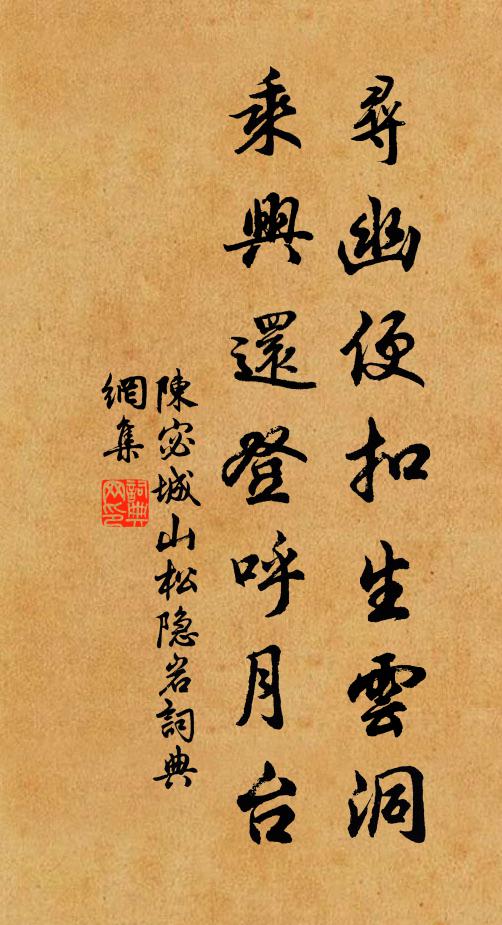 尋幽便扣生雲洞
乘興還登呼月台
陳宓城山松隐岩詞典
網集
詞典
网印